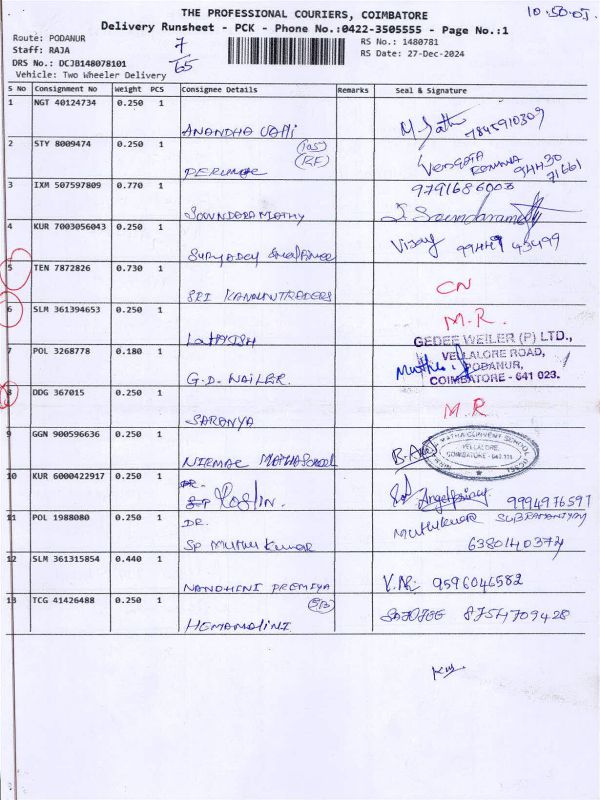 THE PROFESSIONAL COURIERS, COIMBATORE
10.50.05
Delivery Runsheet - PCK - Phone No.:0422-3505555 - Page No.:1
Route: PODANUR
Staff: RAJA
DRS No.: DCJB148078101
Vehicle: Two Wheeler Delivery
7
65
RS No.: 1480781
RS Date: 27-Dec-2024
S No Consignment No Weight PCS Consignee Details Remarks Seal & Signature
1 NGT 40124734 0.250 1
7845910309
2 STY 8009474 0.250 1
PERUMAL
94430
71661
3 IXM 507597809 0.770 1
9791686003
SOUNDARAMATHY
4 KUR 7003056043 0.250 1
Vijay 99447 43499
5 TEN 7872826 0.730 1
SRI KANNAN TRADERS
CN
6 SLM 361394653 0.250 1
M.R.
7 POL 3268778 0.180 1
G.D. WAILER.
GEDEE WEILER (P) LTD.,
VELLALORE ROAD,
PODANUR,
COIMBATORE - 641 023.
8 DDG 367015 0.250 1
SARANYA
M.R
9 GGN 900596636 0.250 1
NIRMAL MATHA SCHOOL
VELLALORE,
10 KUR 6000422917 0.250 1
DR.
Roslin.
9994976597
11 POL 1988080 0.250 1
DR.
SP Muthu Kumar
MUTHUKUMAR SUBRAMANIYAN
6380140374
12 SLM 361315854 0.440 1
NANDHINI PREMIYA
9596046582
13 TCG 41426488 0.250 1
HEMAMALINI
8754709428